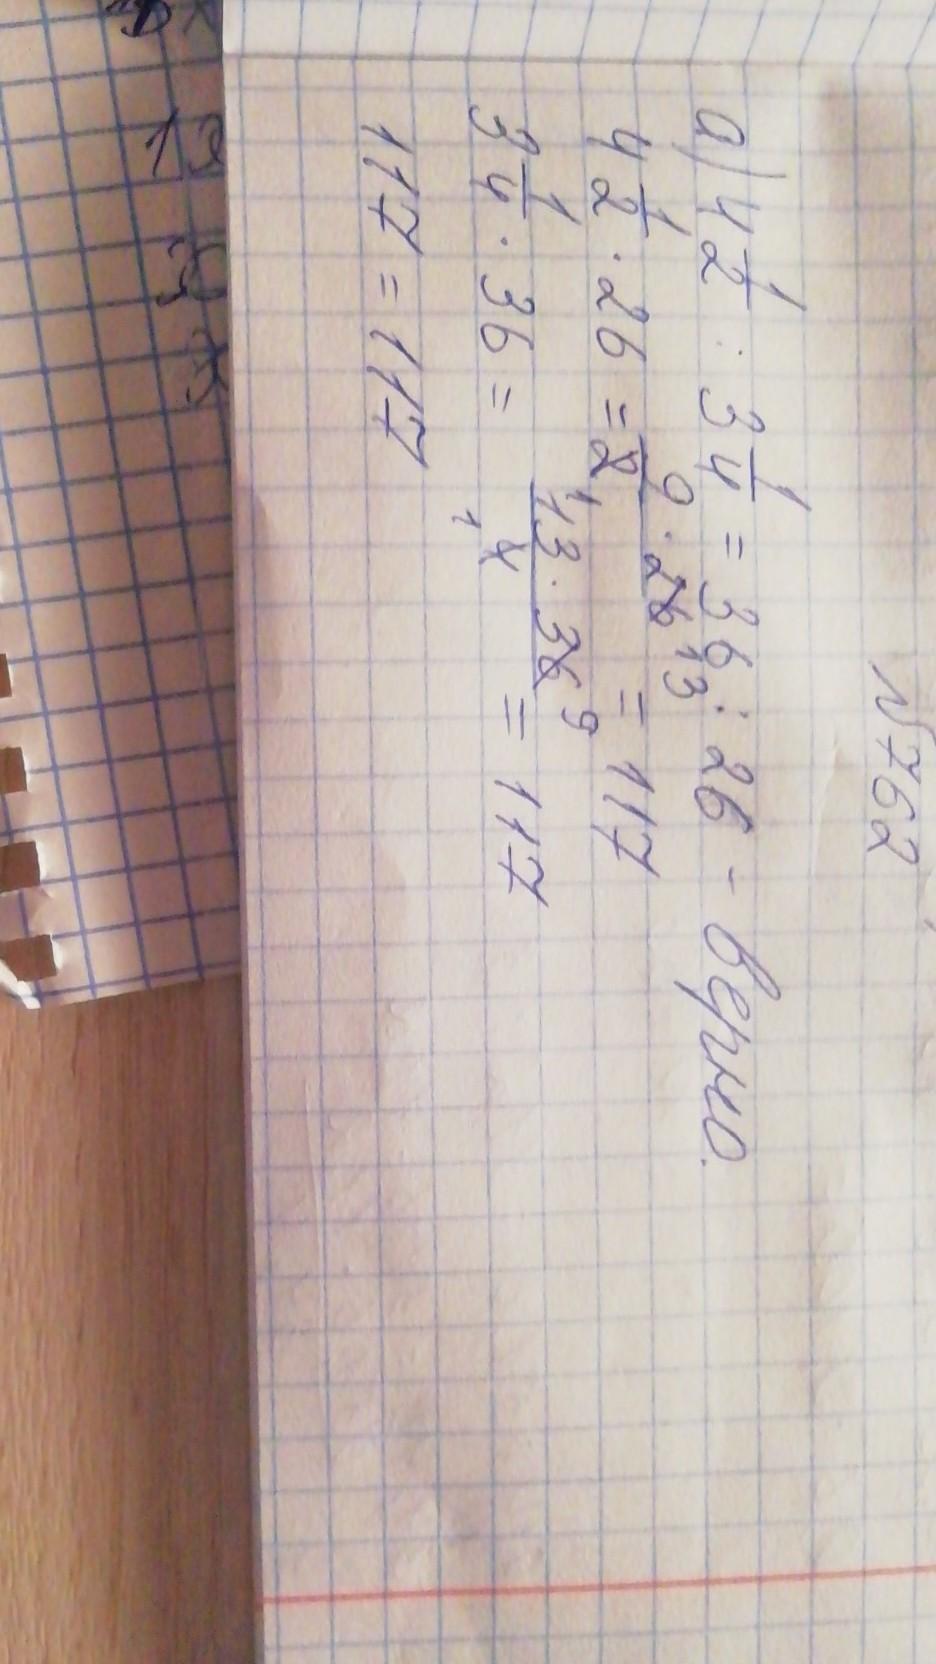 N762
а) 4 1/2 : 3 1/4 = 36 : 26 - верно.
4 1/2 · 26 = 9 · 26 13 / 2 1 = 117
3 1/4 · 36 = 13 · 36 9 / 4 1 = 117
117 = 117